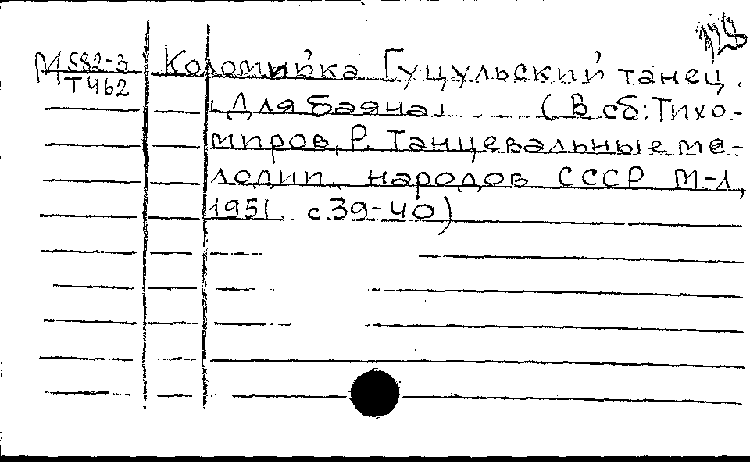 М 582-3 Коломийка Гуцульский танец.
Т462 [Для баяна] (В сб: Тихо-
миров, Р. Танцевальные ме-
лодии народов СССР М-Л,
1951 с 39-40)